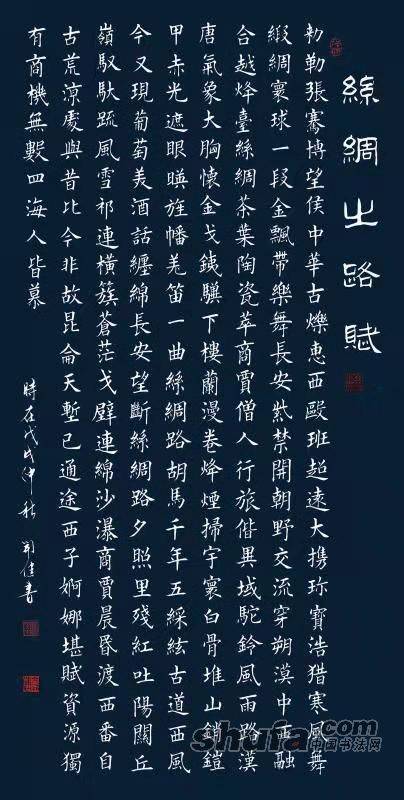 絲綢之路賦
勅勒張騫博望侯中華古爍惠西歐班超遠大携珎寶浩猎寒風舞
緞綢寰球一段金飄帶樂舞長安禁開朝野交流穿朔漠中西融
合越烽臺絲綢茶葉陶瓷萃商賈僧人行旅偕異域駝鈴風雨路漢
唐氣象大胸懷金戈鉄驥下樓蘭漫卷烽煙掃宇寰白骨堆山鎖鎧
甲赤光遮眼暎旌幡羌笛一曲絲綢路胡馬千年五綵絃古道西風
今又現葡萄美酒話纏綿長安望斷絲綢路夕照里殘紅吐陽關丘
嶺馭馱疏風雪祁連橫簇蒼茫戈壁連綿沙瀑商賈晨昏渡西番自
古荒涼處與昔比今非故昆侖天塹已通途西子婀娜堪賦資源獨
有商機無數四海人皆慕
時在戊戌仲秋 佳書
shufa.com
中国书法网